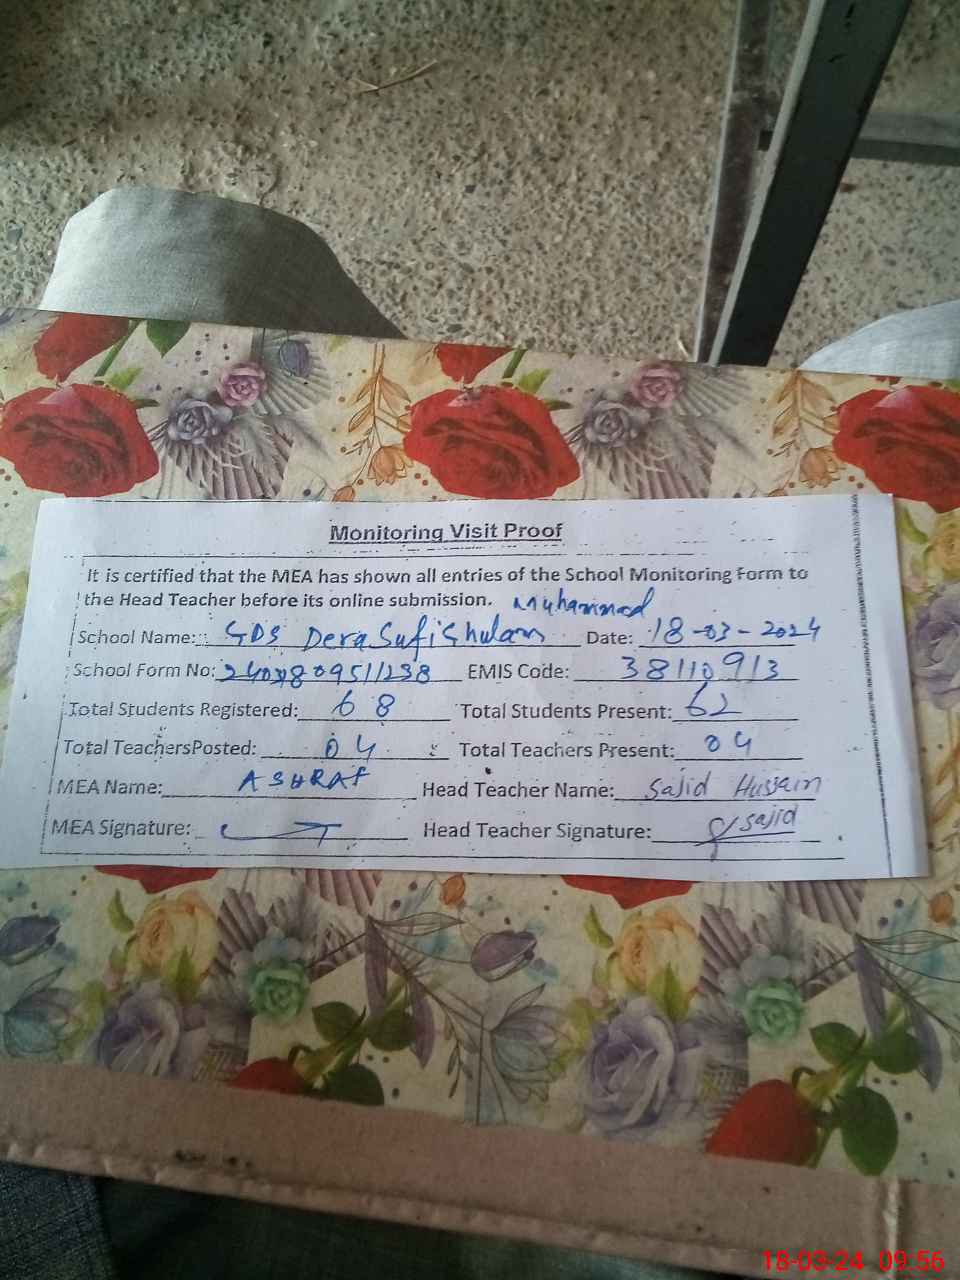 Monitoring Visit Proof
It is certified that the MEA has shown all entries of the School Monitoring Form to
the Head Teacher before its online submission. Muhammad
School Name: GDS Dera Sufi Ghulam Date: 18-03-2024
School Form No: EMIS Code: 38110913
Total Students Registered: 68 Total Students Present: 62
Total TeachersPosted: 04 Total Teachers Present: 04
MEA Name: ASHRAF Head Teacher Name: Sajid Hussain
MEA Signature: Head Teacher Signature: Sajid
18-03-24 09:56